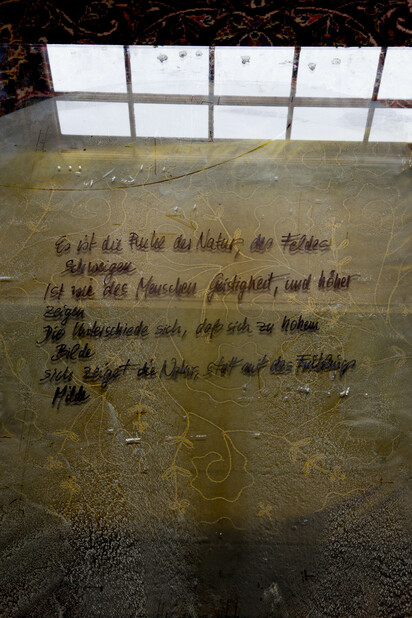 Es ist die Ruhe der Natur, des Feldes
Schweigen
Ist wie des Menschen Geistigkeit, und höher
zeigen
Die Unterschiede sich, daß sich zu hohem
Bilde
sich zeiget die Natur, statt mit des Frühlings
Milde